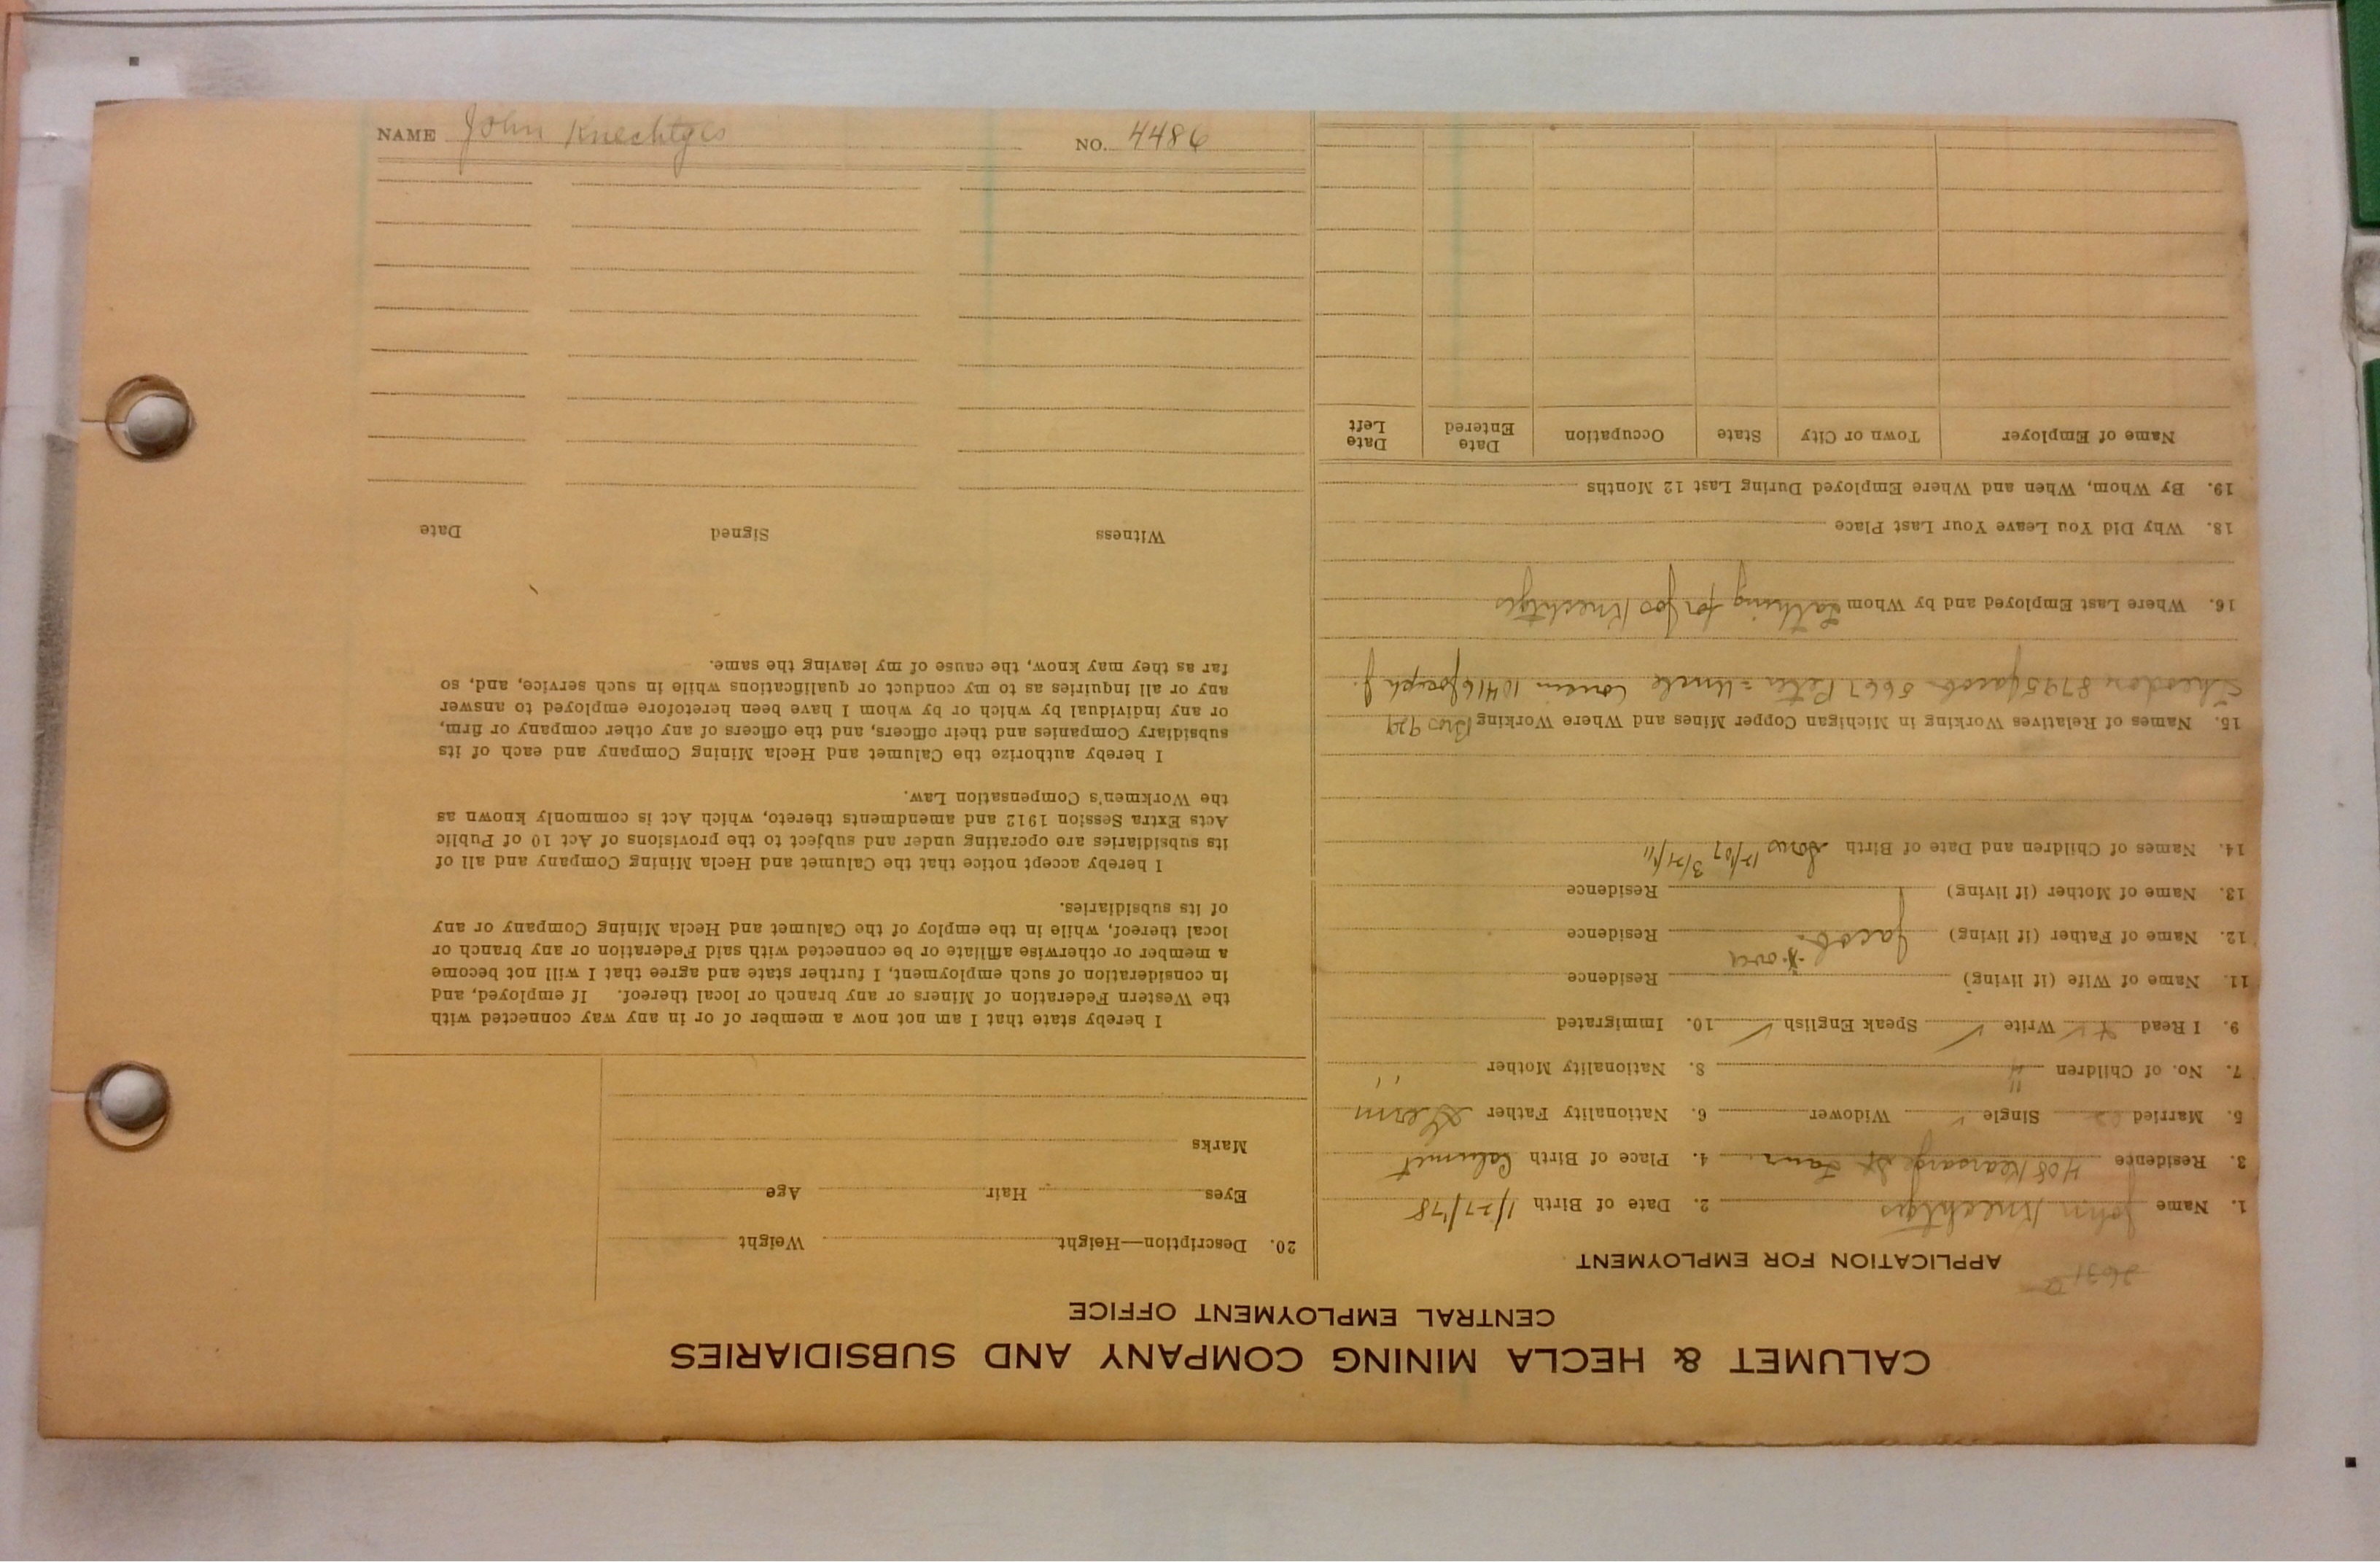 CALUMET & HECLA MINING COMPANY AND SUBSIDIARIES
CENTRAL EMPLOYMENT OFFICE
APPLICATION FOR EMPLOYMENT
1. Name John Knechtges 2. Date of Birth 1/27/78
3. Residence 408 Kearsarge St 4. Place of Birth Calumet
5. Married Single Widower 6. Nationality Father Germ
7. No. of Children 4 8. Nationality Mother "
9. I Read Write ✓ Speak English ✓ 10. Immigrated
11. Name of Wife (if living) Residence
12. Name of Father (if living) Jacob Residence
13. Name of Mother (if living) Residence
14. Names of Children and Date of Birth Sons 12/07 3/21/11
15. Names of Relatives Working in Michigan Copper Mines and Where Working Bros 929
Theodor 8795 Jacob 5667 Peter = Uncle Cousin 10416 Joseph J.
16. Where Last Employed and by Whom Lathing for Jos Knechtges
18. Why Did You Leave Your Last Place
19. By Whom, When and Where Employed During Last 12 Months
Name of Employer Town or City State Occupation Date Entered Date Left
20. Description—Height Weight
Eyes Hair Age
Marks
I hereby state that I am not now a member of or in any way connected with
the Western Federation of Miners or any branch or local thereof. If employed, and
in consideration of such employment, I further state and agree that I will not become
a member or otherwise affiliate or be connected with said Federation or any branch or
local thereof, while in the employ of the Calumet and Hecla Mining Company or any
of its subsidiaries.
I hereby accept notice that the Calumet and Hecla Mining Company and all of
its subsidiaries are operating under and subject to the provisions of Act 10 of Public
Acts Extra Session 1912 and amendments thereto, which Act is commonly known as
the Workmen's Compensation Law.
I hereby authorize the Calumet and Hecla Mining Company and each of its
subsidiary Companies and their officers, and the officers of any other company or firm,
or any individual by which or by whom I have been heretofore employed to answer
any or all inquiries as to my conduct or qualifications while in such service, and, so
far as they may know, the cause of my leaving the same.
Witness Signed Date
NAME John Knechtges NO. 4486